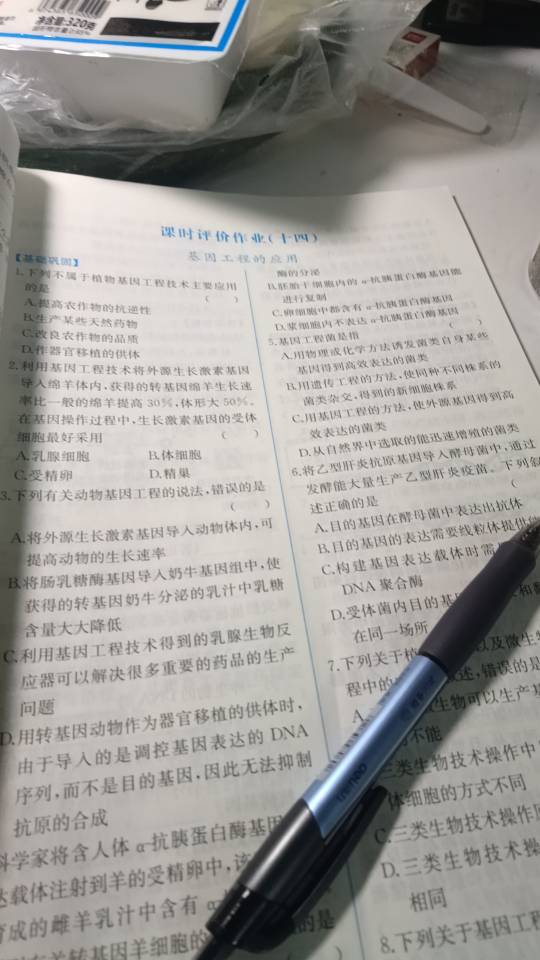 净含量:320克
课时评价作业(十四)
基因工程的应用
【基础巩固】
1.下列不属于植物基因工程技术主要应用
的是 ( )
A.提高农作物的抗逆性
B.生产某些天然药物
C.改良农作物的品质
D.作器官移植的供体
2.利用基因工程技术将外源生长激素基因
导入绵羊体内,获得的转基因绵羊生长速
率比一般的绵羊提高30%,体形大50%。
在基因操作过程中,生长激素基因的受体
细胞最好采用 ( )
A.乳腺细胞 B.体细胞
C.受精卵 D.精巢
3.下列有关动物基因工程的说法,错误的是
( )
A.将外源生长激素基因导入动物体内,可
提高动物的生长速率
B.将肠乳糖酶基因导入奶牛基因组中,使
获得的转基因奶牛分泌的乳汁中乳糖
含量大大降低
C.利用基因工程技术得到的乳腺生物反
应器可以解决很多重要的药品的生产
问题
D.用转基因动物作为器官移植的供体时,
由于导入的是调控基因表达的DNA
序列,而不是目的基因,因此无法抑制
抗原的合成
科学家将含人体α-抗胰蛋白酶基因
达载体注射到羊的受精卵中,该
育成的雌羊乳汁中含有
关转基因羊细胞的 的是
( )
酶的分泌
B.胚胎干细胞内的α-抗胰蛋白酶基因能
进行复制
C.卵细胞中都含有α-抗胰蛋白酶基因
D.浆细胞内不表达α-抗胰蛋白酶基因
5.基因工程菌是指 ( )
A.用物理或化学方法诱发菌类自身某些
基因得到高效表达的菌类
B.用遗传工程的方法,使同种不同株系的
菌类杂交,得到的新细胞株系
C.用基因工程的方法,使外源基因得到高
效表达的菌类
D.从自然界中选取的能迅速增殖的菌类
6.将乙型肝炎抗原基因导入酵母菌中,通过
发酵能大量生产乙型肝炎疫苗。下列叙
述正确的是 (
A.目的基因在酵母菌中表达出抗体
B.目的基因的表达需要线粒体提供
C.构建基因表达载体时需
DNA聚合酶
D.受体菌内目的基 和
在同一场所
7.下列关于 以及微生
程中的 述,错误的是
A. 生物可以生产
不能
三类生物技术操作中
体细胞的方式不同
C.三类生物技术操作
D.三类生物技术操
相同
8.下列关于基因工程